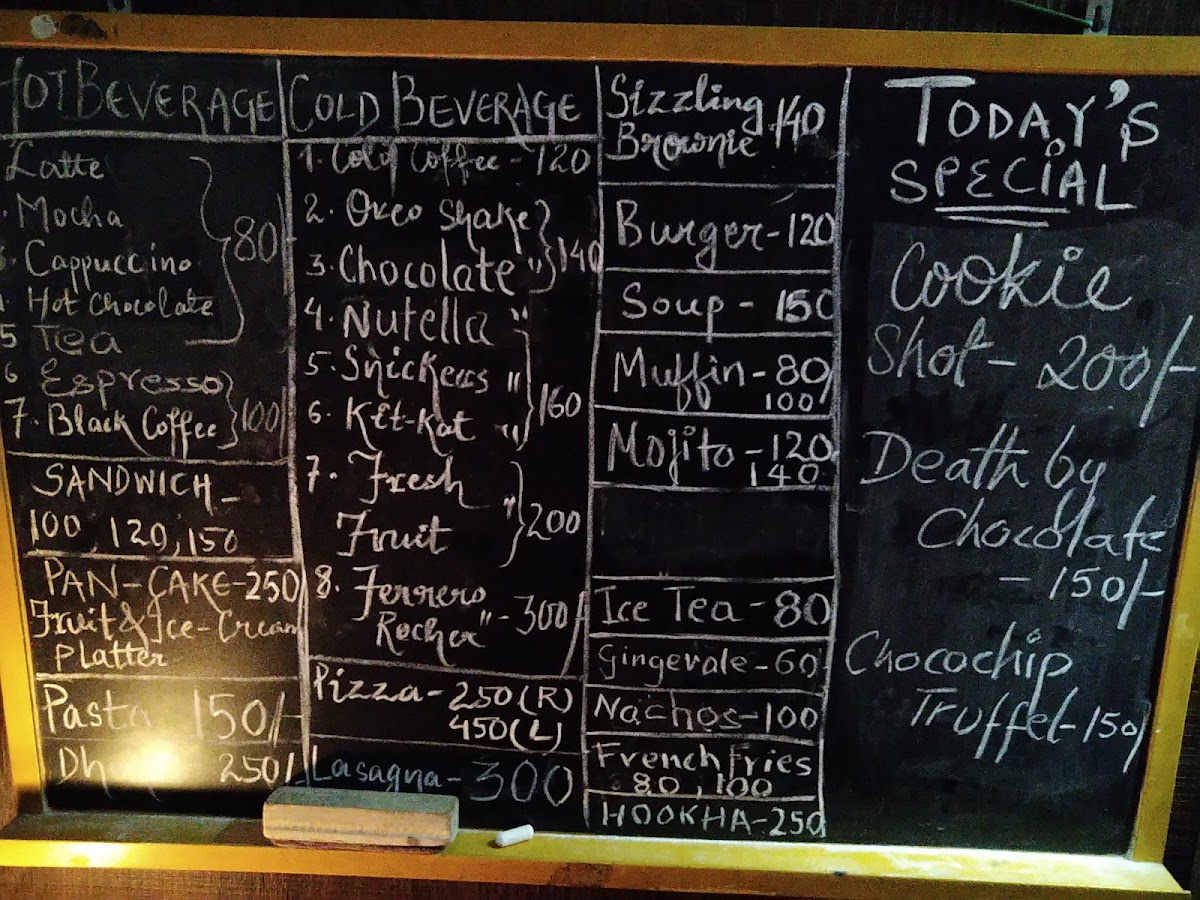 HOT BEVERAGE
Latte
Mocha
Cappuccino
Hot Chocolate
5 Tea
80
6 Espresso
7. Black Coffee
100/
SANDWICH -
100, 120, 150
PAN-CAKE-250
Fruit & Ice-Cream
Platter
Pasta 150/-
250/-
COLD BEVERAGE
1. Cold Coffee - 120
2. Oreo Shake
3. Chocolate "
140
4. Nutella "
5. Snickers "
6. Kit-Kat "
160
7. Fresh
Fruit "
200
8. Ferrero
Rocher" - 300/
Pizza - 250(R)
450(L)
Lasagna - 300
Sizzling
Brownie 140
Burger - 120
Soup - 150
Muffin - 80/
100
Mojito - 120
140
Ice Tea - 80
Gingerale - 60
Nachos - 100
French Fries
80, 100
HOOKHA - 250
TODAY'S
SPECIAL
Cookie
Shot - 200/-
Death by
Chocolate
- 150/-
Chocochip
Truffel - 150/